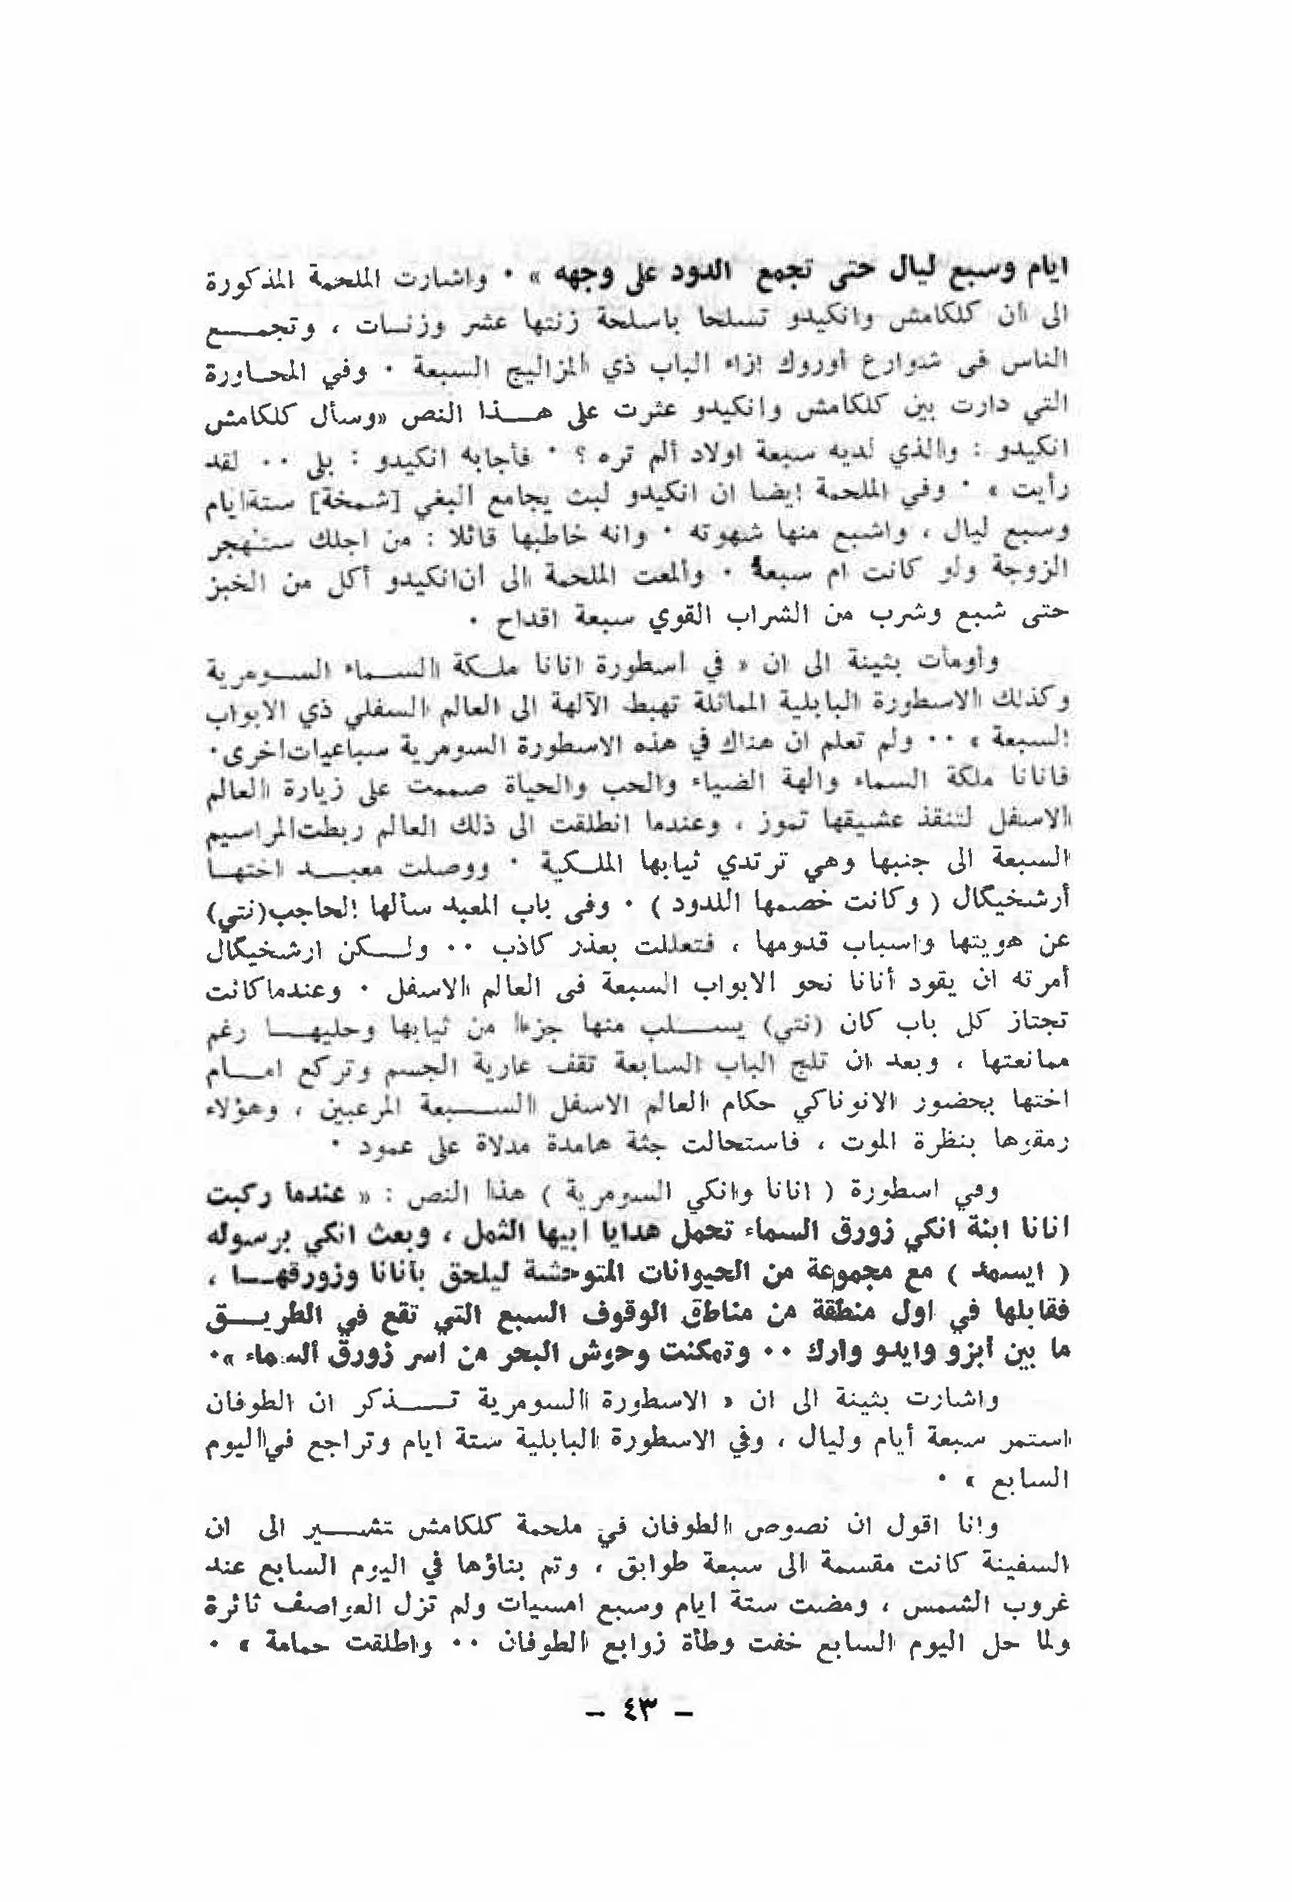 ايام وسبع ليال حتى تجمع الدود على وجهه » ٠ واشارت الملحمة المذكورة
الى ان كلكامش وانكيدو تسلحا باسلحة زنتها عشر وزنات ، وتجمع
الناس في شوارع أوروك إزاء الباب ذي المزاليج السبعة ٠ وفي المحاورة
التي دارت بين كلكامش وانكيدو عثرت على هذا النص «وسأل كلكامش
انكيدو : والذي لديه سبعة اولاد ألم تره ؟ ٠ فأجابه انكيدو : بلى ٠٠ لقد
رأيت » ٠ وفي الملحمة إيضا ان انكيدو لبث يجامع البغي [شمخة] ستة ايام
وسبع ليال ، واشبع منها شهوته ٠ وانه خاطبها قائلا : من اجلك ستهجر
الزوجة ولو كانت ام سبعة ٠ وألمعت الملحمة الى ان انكيدو أكل من الخبز
حتى شبع وشرب من الشراب القوي سبعة اقداح ٠
وأومأت بثينة الى ان « في اسطورة انانا ملكة السماء السومرية
وكذلك الاسطورة البابلية المماثلة تهبط الآلهة الى العالم السفلي ذي الابواب
السبعة » ٠٠ ولم تعلم ان هناك في هذه الاسطورة السومرية سباعيات اخرى٠
فانانا ملكة السماء والهة الضياء والحب والحياة صممت على زيارة العالم
الاسفل لتنقذ عشيقها تموز ، وعندما انطلقت الى ذلك العالم ربطت المراسيم
السبعة الى جنبها وهي ترتدي ثيابها الملكية ٠ ووصلت معبد اختها
أرشخيگال ( وكانت خصمها اللدود ) ٠ وفى باب المعبد سألها الحاجب(نتي)
عن هويتها واسباب قدومها ، فتعللت بعذر كاذب ٠٠ ولكن ارشخيگال
أمرته ان يقود أنانا نحو الابواب السبعة فى العالم الاسفل ٠ وعندما كانت
تجتاز كل باب كان (نتي) يسلب منها جزءا من ثيابها وحليها رغم
ممانعتها ، وبعد ان تلج الباب السابعة تقف عارية الجسم وتركع امام
اختها بحضور الانوناكي حكام العالم الاسفل السبعة المرعبين ، وهؤلاء
رمقوها بنظرة الموت ، فاستحالت جثة هامدة مدلاة على عمود ٠
وفي اسطورة ( انانا وانكي السومرية ) هذا النص : « عندما ركبت
انانا ابنة انكي زورق السماء تحمل هدايا ابيها الثمل ، وبعث انكي برسوله
( ايسمد ) مع مجموعة من الحيوانات المتوحشة ليلحق بأنانا وزورقها ،
فقابلها في اول منطقة من مناطق الوقوف السبع التي تقع في الطريق
ما بين ابزو وايدو وارك ٠٠ وتمكنت وحوش البحر من اسر زورق السماء »٠
واشارت بثينة الى ان « الاسطورة السومرية تذكر ان الطوفان
استمر سبعة أيام وليال ، وفي الاسطورة البابلية ستة ايام وتراجع في اليوم
السابع » ٠
وانا اقول ان نصوص الطوفان في ملحمة كلكامش تشير الى ان
السفينة كانت مقسمة الى سبعة طوابق ، وتم بناؤها في اليوم السابع عند
غروب الشمس ، ومضت ستة ايام وسبع امسيات ولم تزل العواصف ثائرة
ولما حل اليوم السابع خفت وطأة زوابع الطوفان ٠٠ واطلقت حمامة » ٠
– ٤٣ –